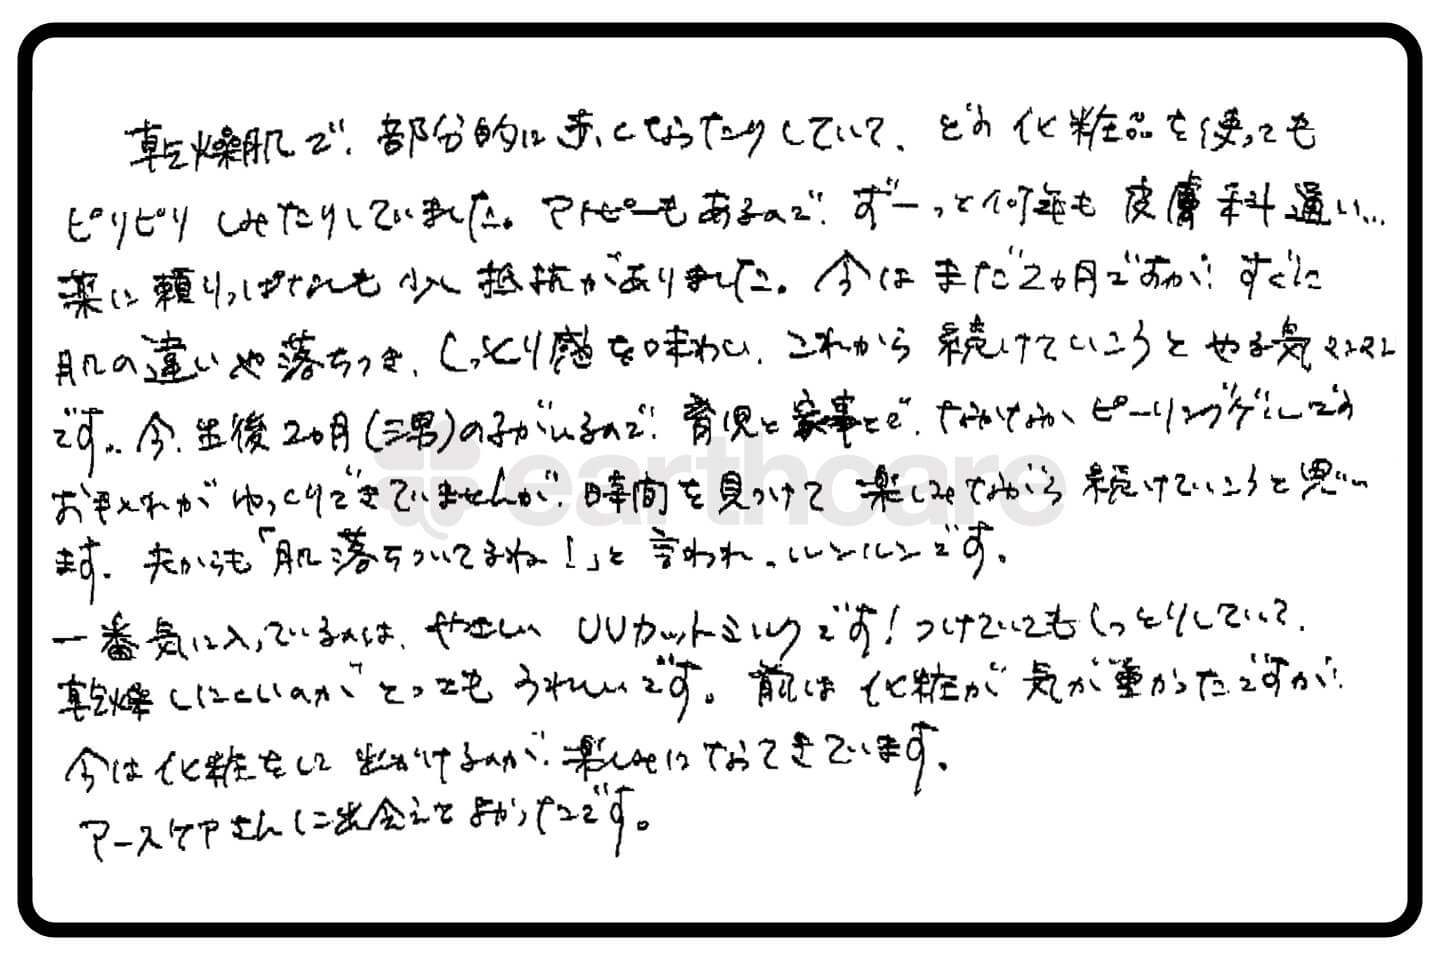 乾燥肌で、部分的に赤くなったりしていて、どの化粧品を使っても
ピリピリしみたりしていました。アトピーもあるので、ずーっと何年も皮膚科通い…
薬に頼りっぱなしも少し抵抗がありました。今はまだ2ヵ月ですが、すぐに
肌の違いや落ちつき、しっとり感を味わい、これから続けていこうとやる気マンマン
です。今、生後2ヵ月(三男)の子がいるので、育児と家事とで、なかなかピーリングゲルでの
お手入れがゆっくりできていませんが、時間を見つけて楽しみながら続けていこうと思い
ます。夫からも「肌落ちついてるね!」と言われ、ルンルンです。
一番気に入っているのは、やさしいUVカットミルクです!つけていてもしっとりしていて、
乾燥しにくいのがとってもうれしいです。前は化粧が気が重かったですが、
今は化粧をして出かけるのが、楽しみになってきています。
アースケアさんに出会えてよかったです。
earthcare